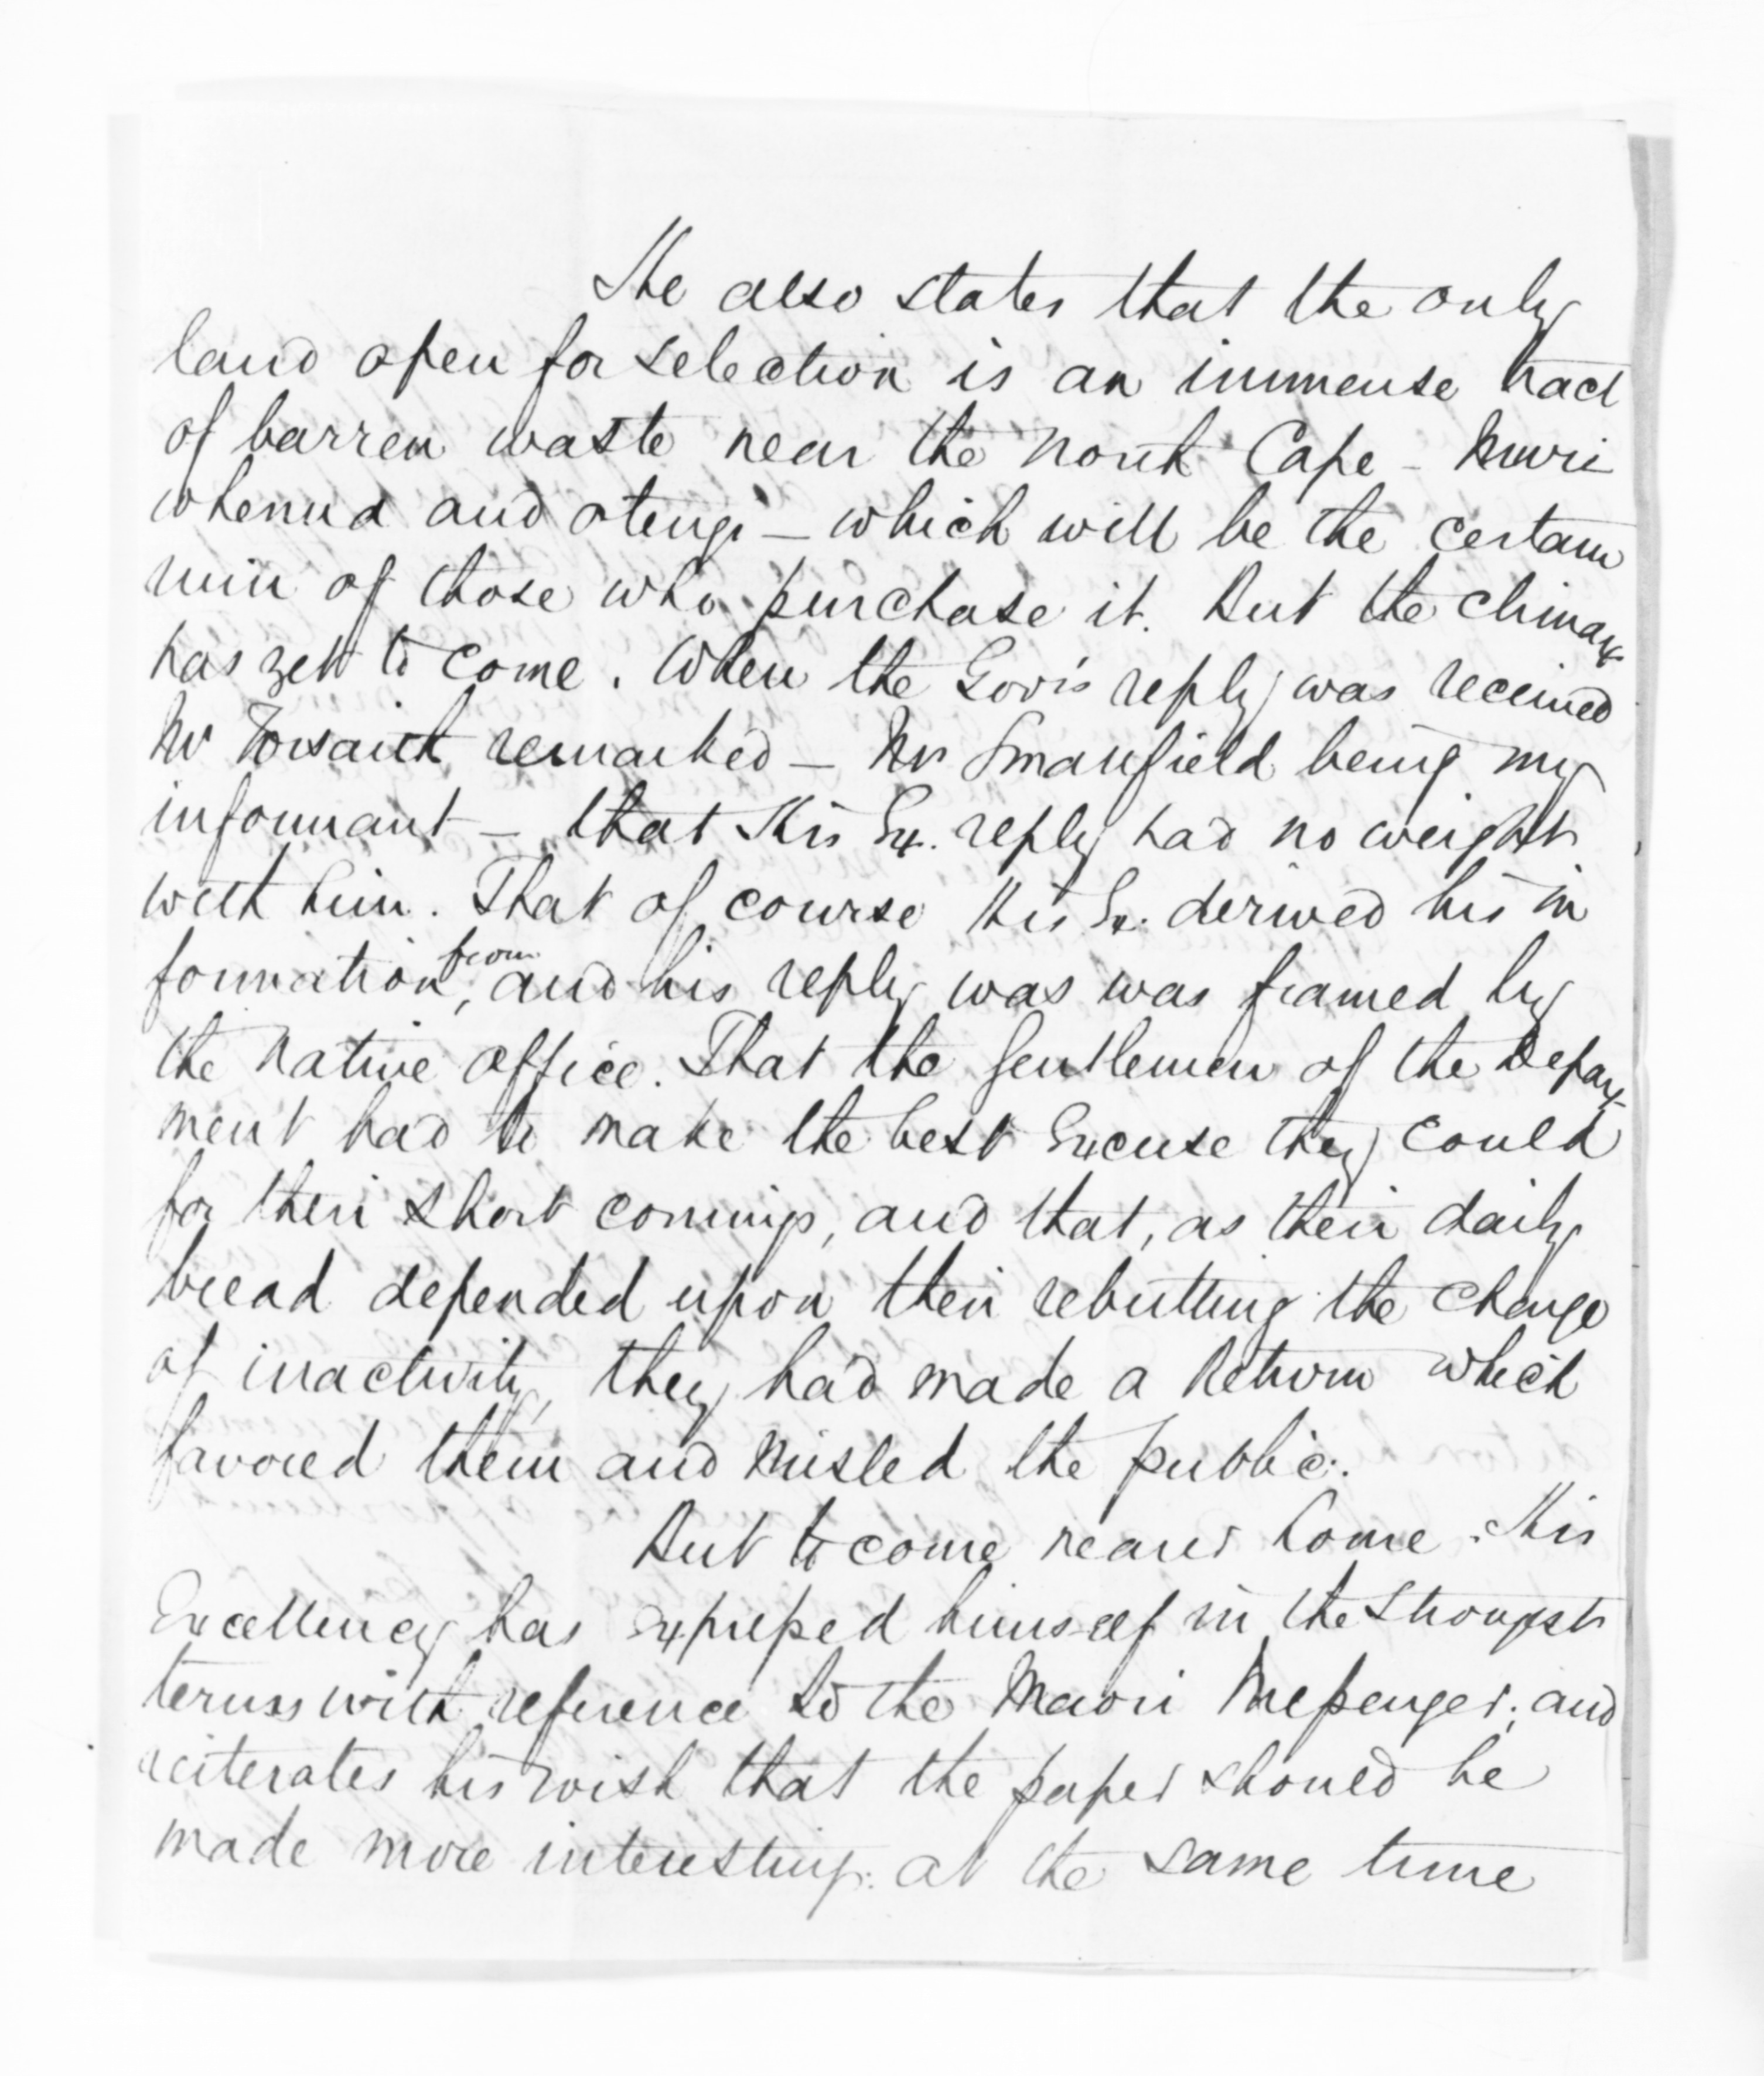 He also states that the only
land open for selection is an immense tract
of barren waste near the North Cape - Muri
whenua and Otengi - which will be the certain
ruin of those who purchase it. But the climax
has yett to come. When the Gov's reply was received
Mr Forsaith remarked - Mr Smanfield being my
informant - that His Ex. reply had no weight
with him. That of course His Ex. derived his in
formation from, and his reply was was framed by
the Native Office. That the Gentlemen of the Depart
ment had to make the best Excuse they could
for their short comings, and that, as their daily
bread depended upon their rebutting the charge
of inactivity, they had made a Return which
favored them and misled the public.
But to come nearer home. His
Excellency has Expressed himself in the strongest
terms with reference to the Maori Messenger; and
reiterates his wish that the paper should be
made more interesting: at the same time